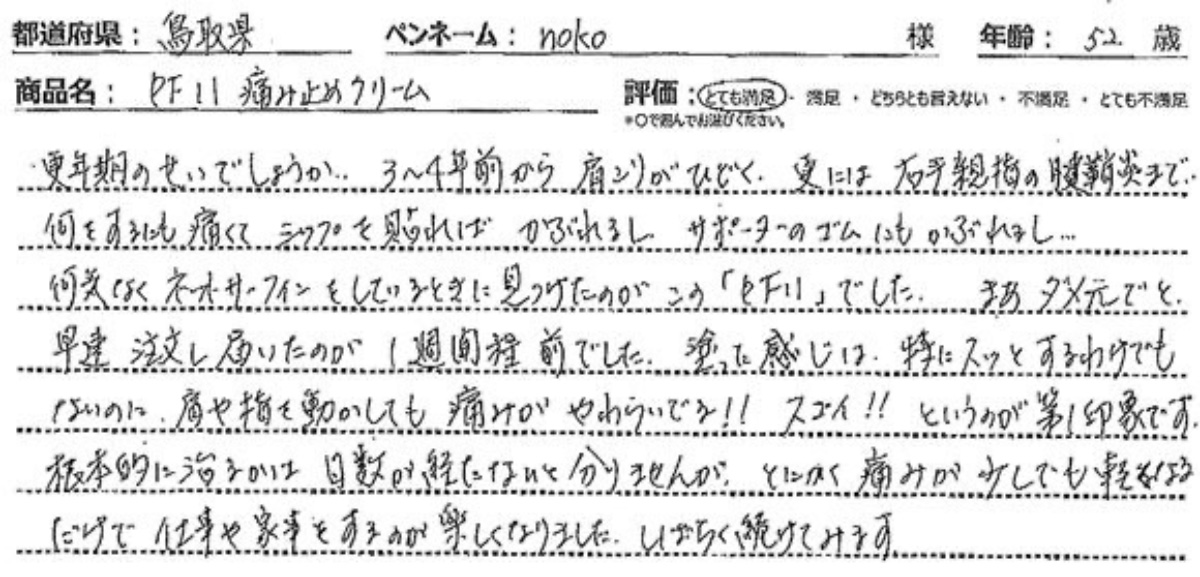 都道府県：鳥取県 ペンネーム：noko 様 年齢：52 歳
商品名：PF11 痛み止めクリーム 評価：とても満足・満足・どちらとも言えない・不満足・とても不満足
*○で囲んでお選びください。
更年期のせいでしょうか.. 3〜4年前から 肩こりがひどく、更には 右手親指の腱鞘炎まで..
何をするにも痛くて シップを貼れば かぶれるし サポーターのゴムにもかぶれるし...
何気なく ネットサーフィンをしているときに見つけたのが この「PF11」でした. まあ ダメ元でと、
早速 注文し届いたのが 1週間程前でした. 塗った感じは、特にスッとするわけでも
ないのに、肩や指を動かしても 痛みが やわらいでる!! スゴイ!! というのが第1印象です.
根本的に治るかは 日数が経たないと分りませんが、とにかく 痛みが少しでも軽くなる
だけで 仕事や家事をするのが楽しくなりました. しばらく続けてみます